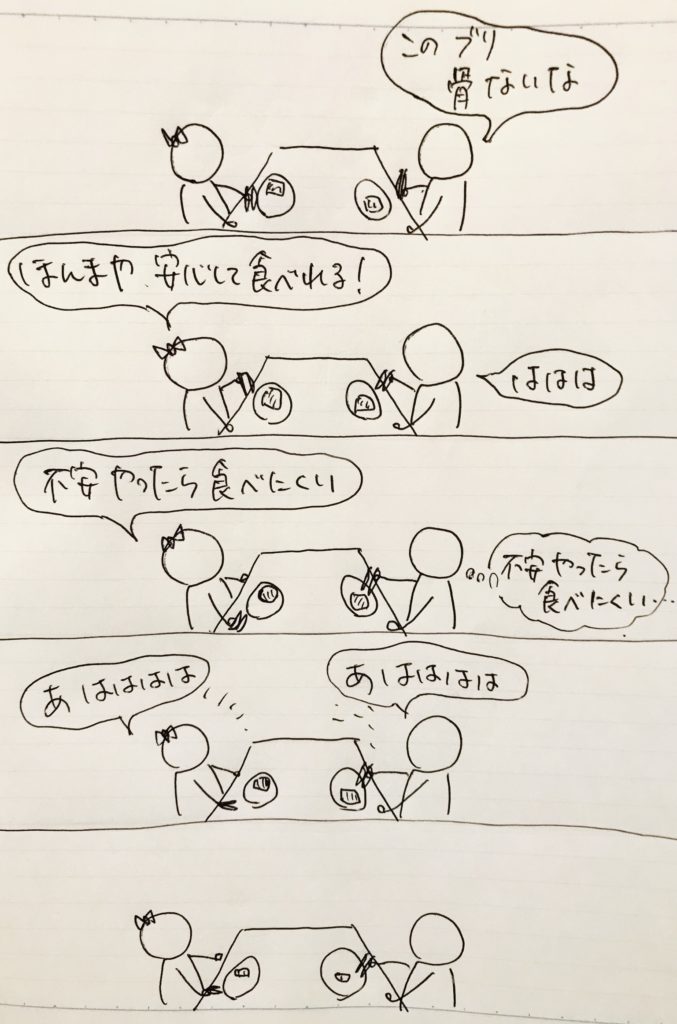 このブリ
骨ないな
ほんまや、安心して食べれる!
ははは
不安やったら食べにくい
不安やったら
食べにくい…
あはははは
あはははは